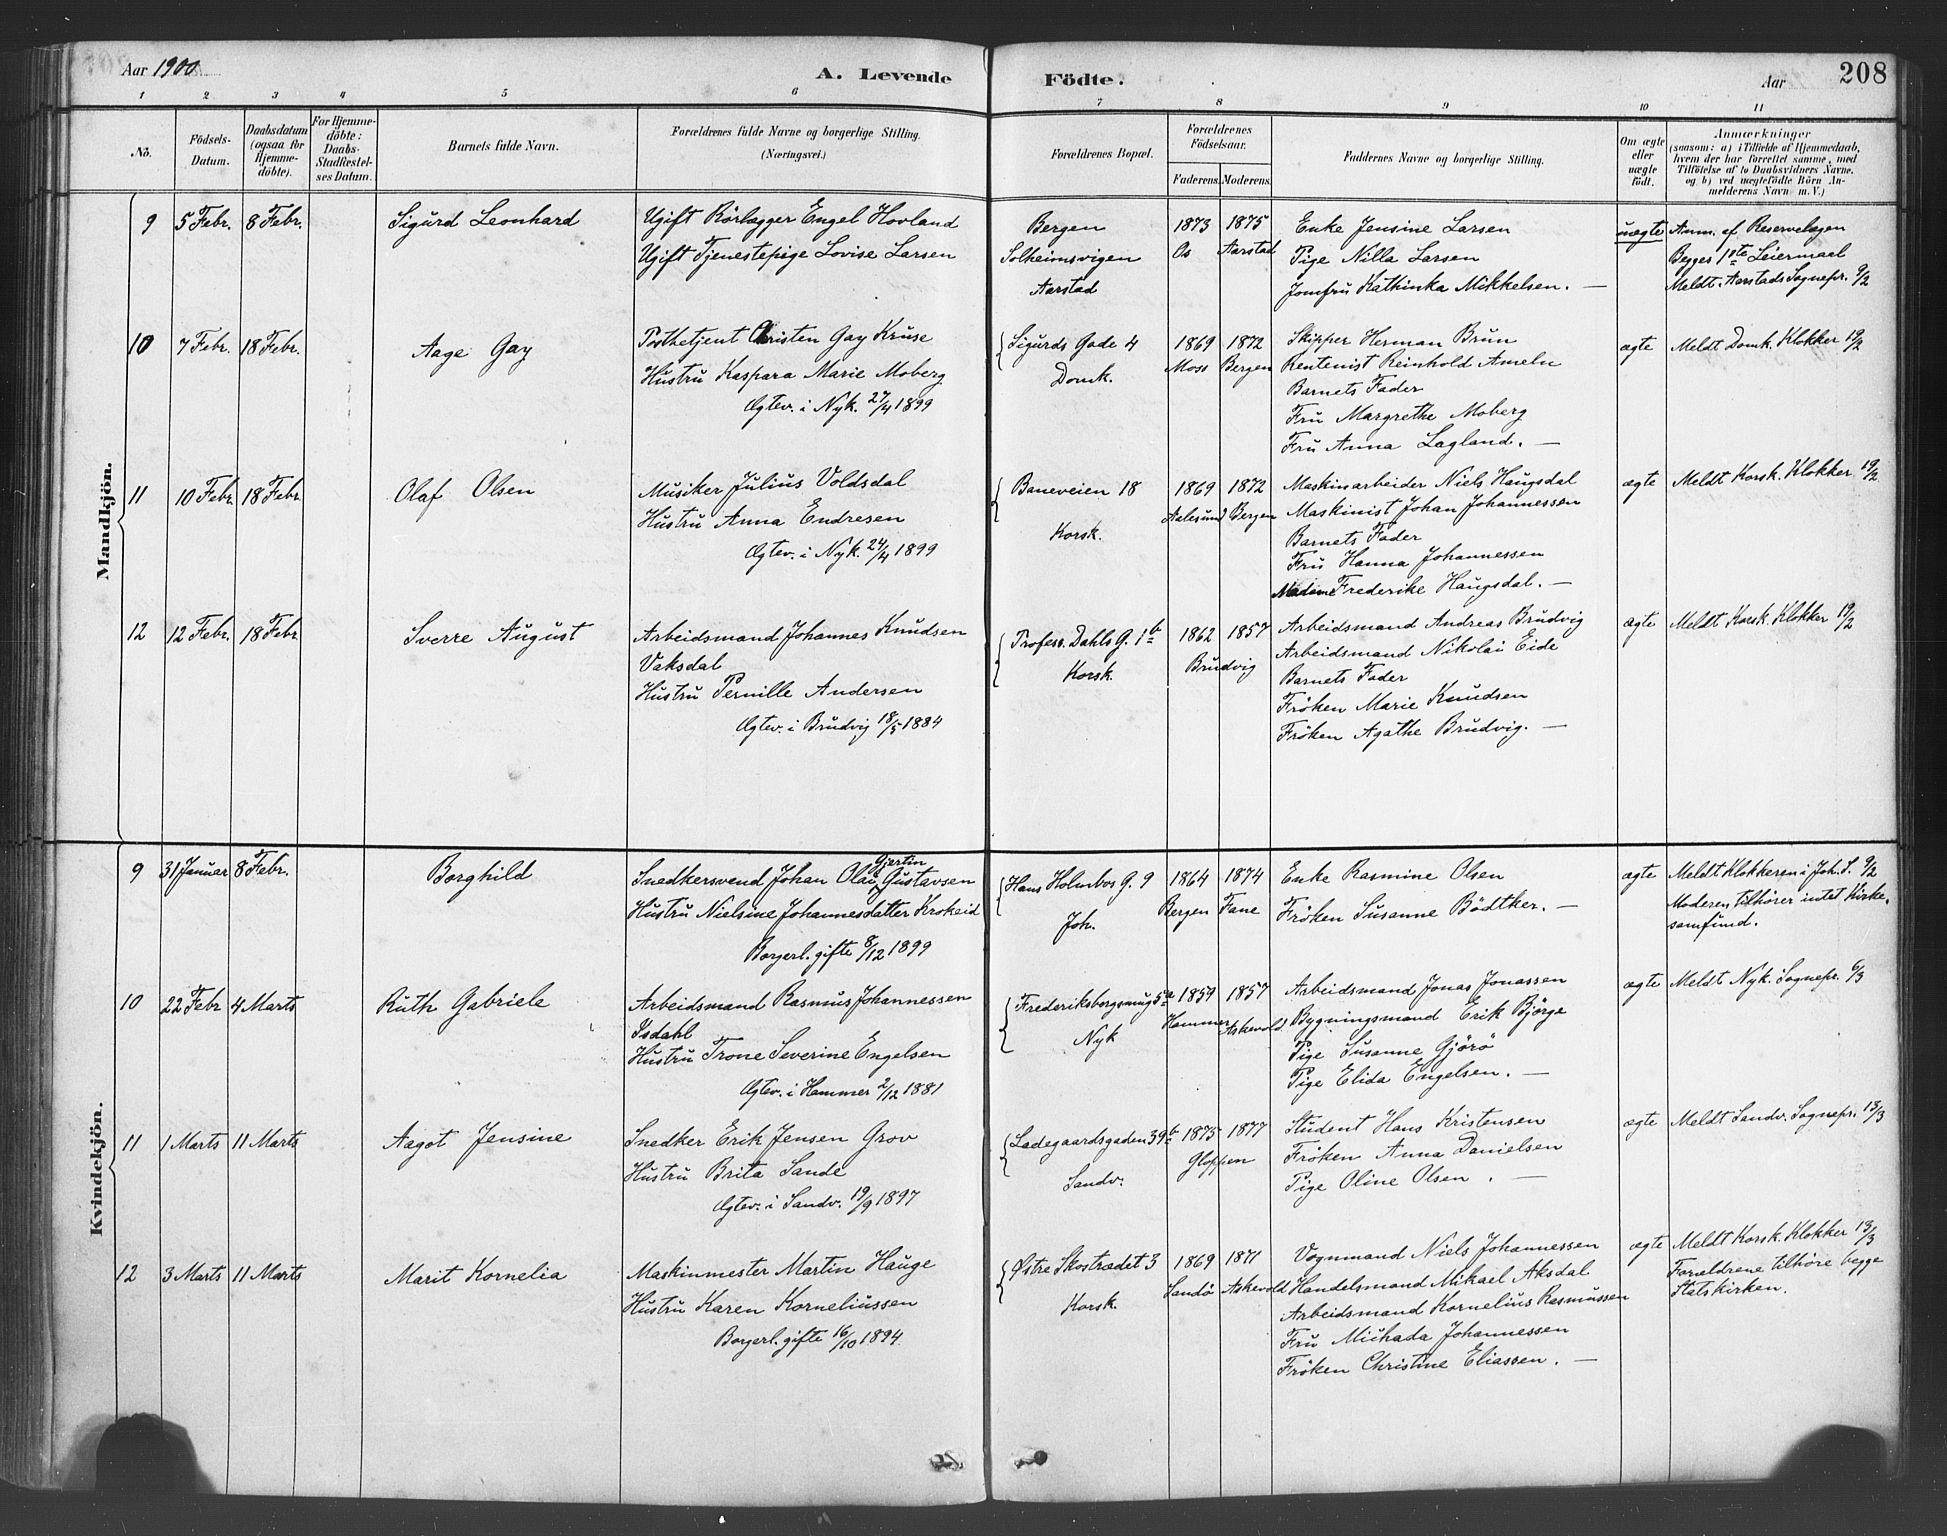 Aar 1900
A. Levende Födte.
Aar
208
1 2 3 4 5 6 7 8 9 10 11
No.
Födsels-Datum.
Daabsdatum (ogsaa for Hjemme-döbte).
For Hjemme-döbte: Daabs-Stadfæstel-ses Datum.
Barnets fulde Navn.
Forældrenes fulde Navne og borgerlige Stilling.
(Næringsvei.)
Forældrenes Bopæl.
Forældrenes Födselsaar.
Faderens. Moderens.
Faddernes Navne og borgerlige Stilling.
Om ægte eller uægte födt.
Anmærkninger
(saasom: a) i Tilfælde af Hjemmedaab,
hvem der har forrettet samme, med
Tilföielse af to Daabsvidners Navne.
og b) ved uægtefödte Börn An-
melderens Navn m. V.)
Mandkjön.
9 5 Febr. 8 Febr. Sigurd Leonhard
Ugift Rörlægger Engel Hovland
Ugift Tjenestepige Lovise Larsen
Bergen
Solheimsvigen
Aarstad
1873 1875
Os Aarstad
Enke Jensine Larsen
Pige Nilla Larsen
Jomfru Kathinka Mikkelsen. —
uægte
Anm. af Reservelægen
Begges 1ste Leiermaal
Meldt. Aarstads Sognepr. 9/2
10 7 Febr. 18 Febr. Aage Gay
Postbetjent Christen Gay Kruse
Hustru Kaspara Marie Moberg
Ægtev. i Nyk. 27/4 1899
Sigurds Gade 4
Domk.
1869 1872
Moss Bergen
Skipper Herman Brun
Rentenist Reinhold Ameln
Barnets Fader
Fru Margrethe Moberg
Fru Anna Lagland. —
ægte
Meldt Domk. Klokker 19/2
11 10 Febr. 18 Febr. Olaf Olsen
Musiker Julius Voldsdal
Hustru Anna Endresen
Ægtev. i Nyk. 24/4 1899
Baneveien 18
Korsk.
1869 1872
Aalesund Bergen
Maskinarbeider Niels Haugsdal
Maskinist Johan Johannessen
Barnets Fader
Fru Hanna Johannessen
Madame Frederike Haugsdal. —
ægte
Meldt Korsk. Klokker 19/2
12 12 Febr. 18 Febr. Sverre August
Arbeidsmand Johannes Knudsen
Vaksdal
Hustru Pernille Andersen
Ægtev. i Brudvig 18/5 1884
Profess. Dahls G. 1b
Korsk.
1862 1857
Brudvig
Arbeidsmand Andreas Brudvig
Arbeidsmand Nikolai Eide
Barnets Fader
Fröken Marie Knudsen
Fröken Agathe Brudvig. —
ægte
Meldt Korsk. Klokker 19/2
Kvindekjön.
9 31 Januar 8 Febr. Borghild
Gjertin
Snedkersvend Johan Olai Gustavsen
Hustru Nielsine Johannesdatter Krokeid
Borgerl. gifte 8/12 1899
Hans Holmbos G. 9
Joh.
1864 1874
Bergen Fane
Enke Rasmine Olsen
Fröken Susanne Bödtker. —
ægte
Meldt Klokkeren i Joh. S. 9/2
Moderen tilhörer intet Kirke-
samfund.
10 22 Febr 4 Marts Ruth Gabriele
Arbeidsmand Rasmus Johannessen
Isdahl
Hustru Trone Severine Engelsen
Ægtev. i Hammer 2/12 1881
Frederiksborgsmug 5a
Nyk
1859 1857
Hammer Askevold.
Arbeidsmand Jonas Jonassen
Bygningsmand Erik Björge
Pige Susanne Gjörö
Pige Elida Engelsen. —
ægte
Meldt Nyk. Sognepr. 6/3
11 1 Marts 11 Marts Aagot Jensine
Snedker Erik Jensen Grov
Hustru Brita Sande
Ægtev. i Sandv. 19/9 1897
Ladegaardsgaden 39b
Sandv.
1875 1877
Gloppen
Student Hans Kristensen
Fröken Anna Danielsen
Pige Oline Olsen. —
ægte
Meldt Sandv. Sognepr. 13/3
12 3 Marts 11 Marts Marit Kornelia
Maskinmester Martin Hauge
Hustru Karen Korneliussen
Borgerl. gifte 16/10 1894.
Østre Skostrædet 3
Korsk.
1869 1871
Sandö Askevold
Vognmand Niels Johannessen
Handelsmand Mikael Aksdal
Arbeidsmand Kornelius Rasmussen
Fru Michada Johannessen
Fröken Christine Eliassen. —
ægte
Meldt Korsk. Klokker 13/3
Forældrene tilhöre begge
Statskirken.